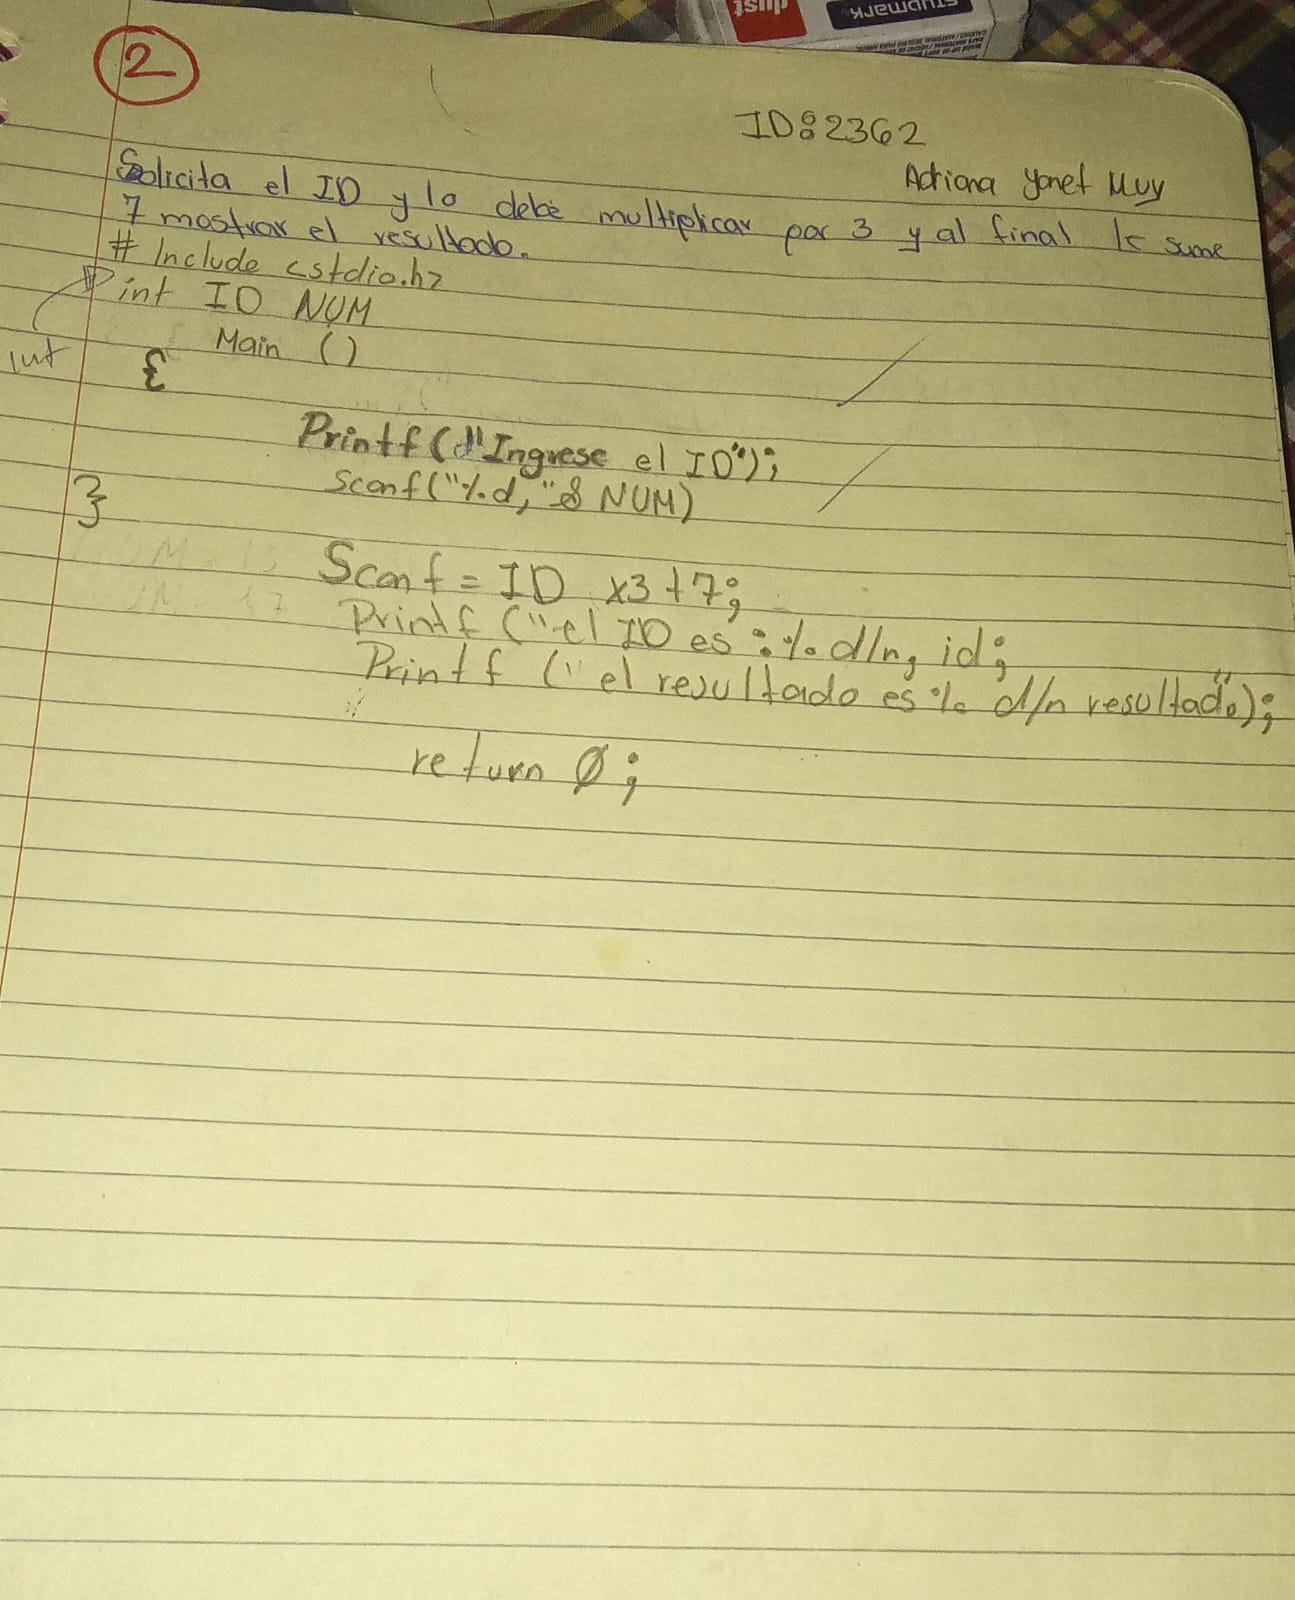 dust
STUDMARK
2
ID:2362
Adriana Yanet Muy
Solicita el ID y lo debe multiplicar por 3 y al final le sume
7 mostrar el resultado.
# Include <stdio.h>
int ID NUM
int
Main ()
{
Printf ("Ingrese el ID");
Scanf("%d," & NUM)
}
Scanf = ID x3+7;
Printf ("el ID es :% d/n, id;
Printf (" el resultado es % d/n resultado");
return 0;